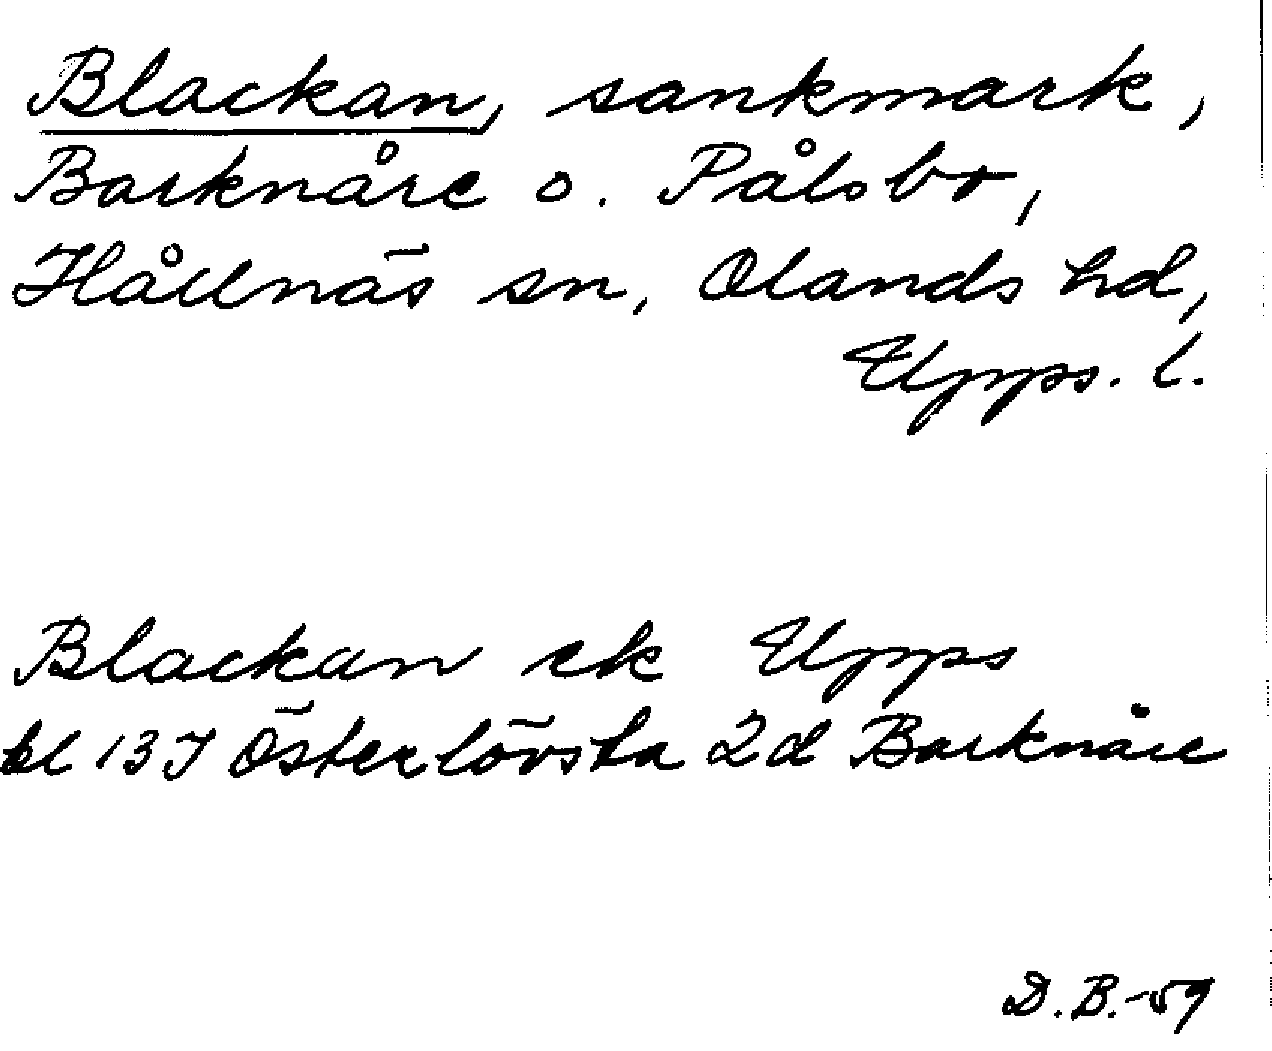 Blackan, sankmark,
Barknåre o. Pålsbo,
Hållnäs sn, Olands hd,
Upps. l.
Blackan ek Upps
bl 13J Österlövsta 2d Barknåre
D.B.-59